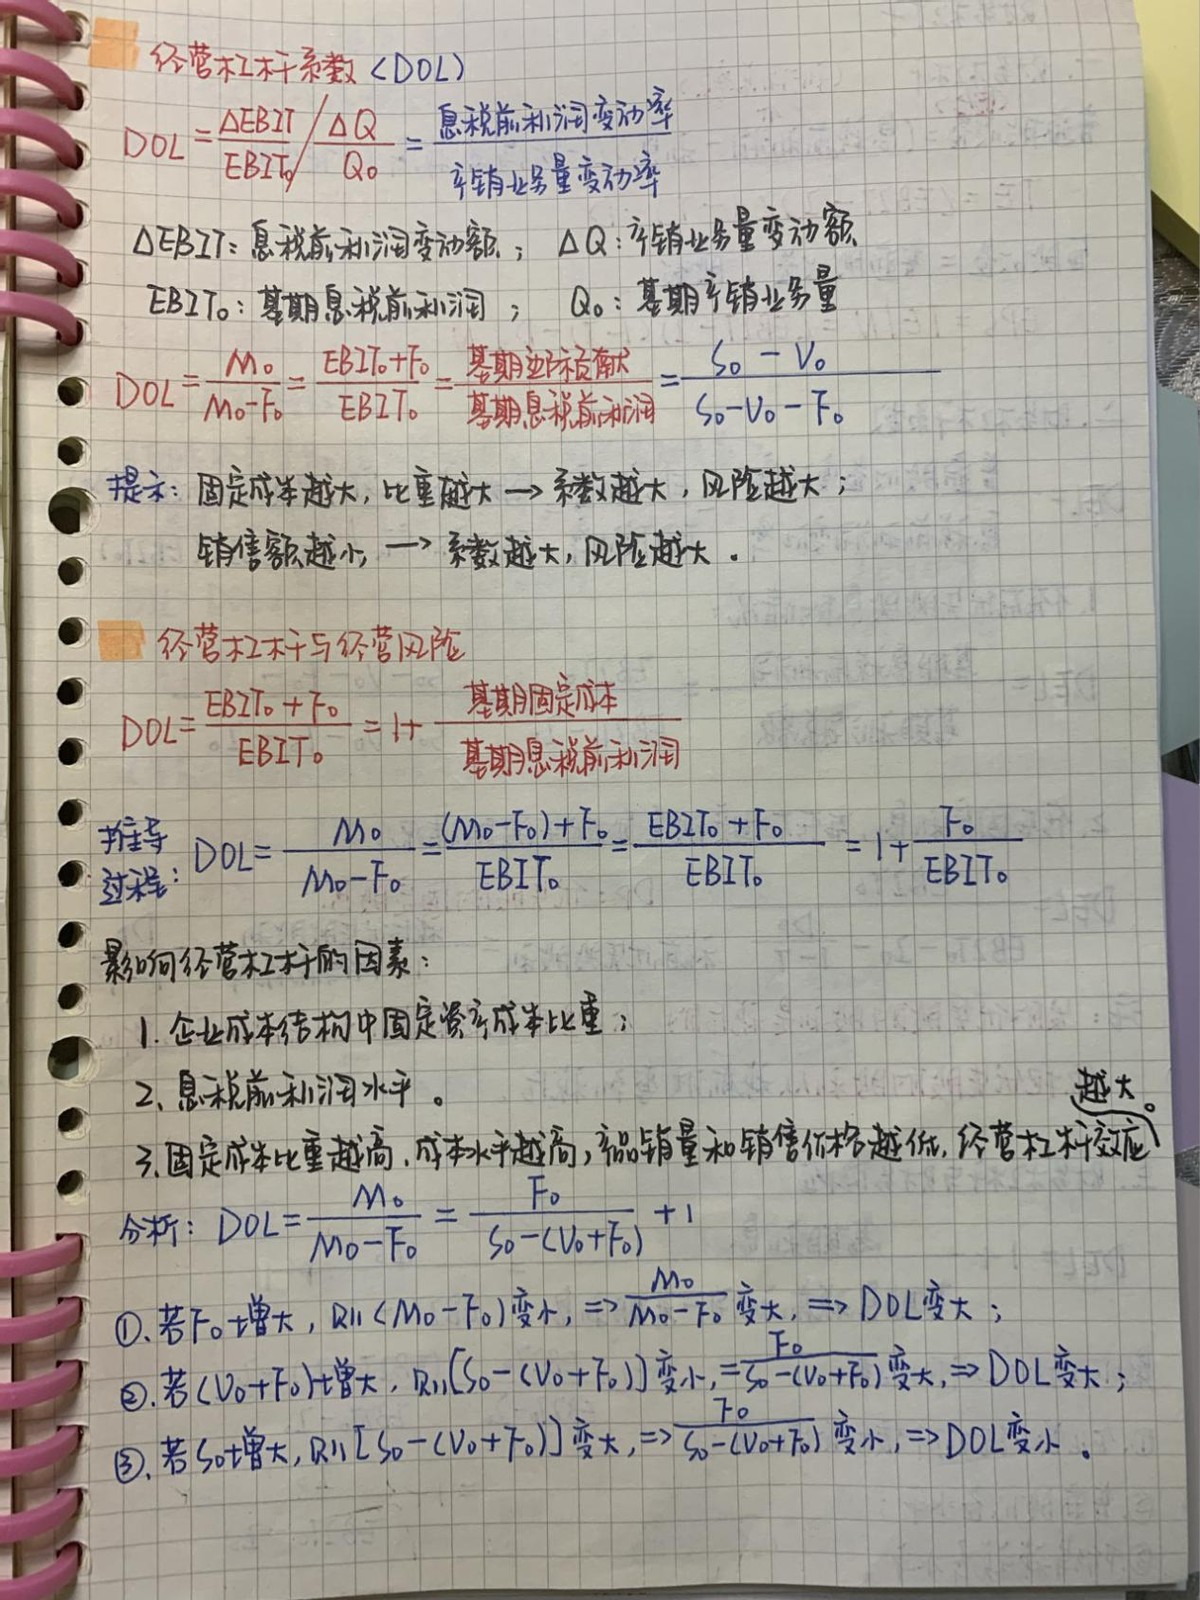 经营杠杆系数(DOL)
DOL = ΔEBIT/EBIT₀ / ΔQ/Q₀ = 息税前利润变动率/产销业务量变动率
ΔEBIT: 息税前利润变动额; ΔQ: 产销业务量变动额
EBIT₀: 基期息税前利润; Q₀: 基期产销业务量
DOL = M₀/(M₀-F₀) = (EBIT₀+F₀)/EBIT₀ = 基期边际贡献/基期息税前利润 = (S₀-V₀)/(S₀-V₀-F₀)
提示: 固定成本越大, 比重越大 → 系数越大, 风险越大;
销售额越小, → 系数越大, 风险越大。
经营杠杆与经营风险
DOL = (EBIT₀+F₀)/EBIT₀ = 1+ 基期固定成本/基期息税前利润
推导过程: DOL = M₀/(M₀-F₀) = ((M₀-F₀)+F₀)/EBIT₀ = (EBIT₀+F₀)/EBIT₀ = 1+ F₀/EBIT₀
影响经营杠杆的因素:
1. 企业成本结构中固定资产成本比重;
2、息税前利润水平。
3、固定成本比重越高、成本水平越高, 产品销量和销售价格越低, 经营杠杆效应越大。
分析: DOL = M₀/(M₀-F₀) = F₀/(S₀-(V₀+F₀)) +1
①、若F₀增大, 则(M₀-F₀)变小, => M₀/(M₀-F₀)变大, => DOL变大;
②、若(V₀+F₀)增大, 则[S₀-(V₀+F₀)]变小, = F₀/(S₀-(V₀+F₀))变大, => DOL变大;
③、若S₀增大, 则[S₀-(V₀+F₀)]变大, => F₀/(S₀-(V₀+F₀))变小, => DOL变小。